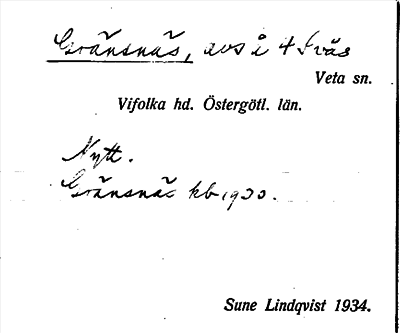 Gränsnäs, avs å 4 Fräs
Veta sn.
Vifolka hd. Östergötl. län.
Nytt.
Gränsnäs kb 1930.
Sune Lindqvist 1934.